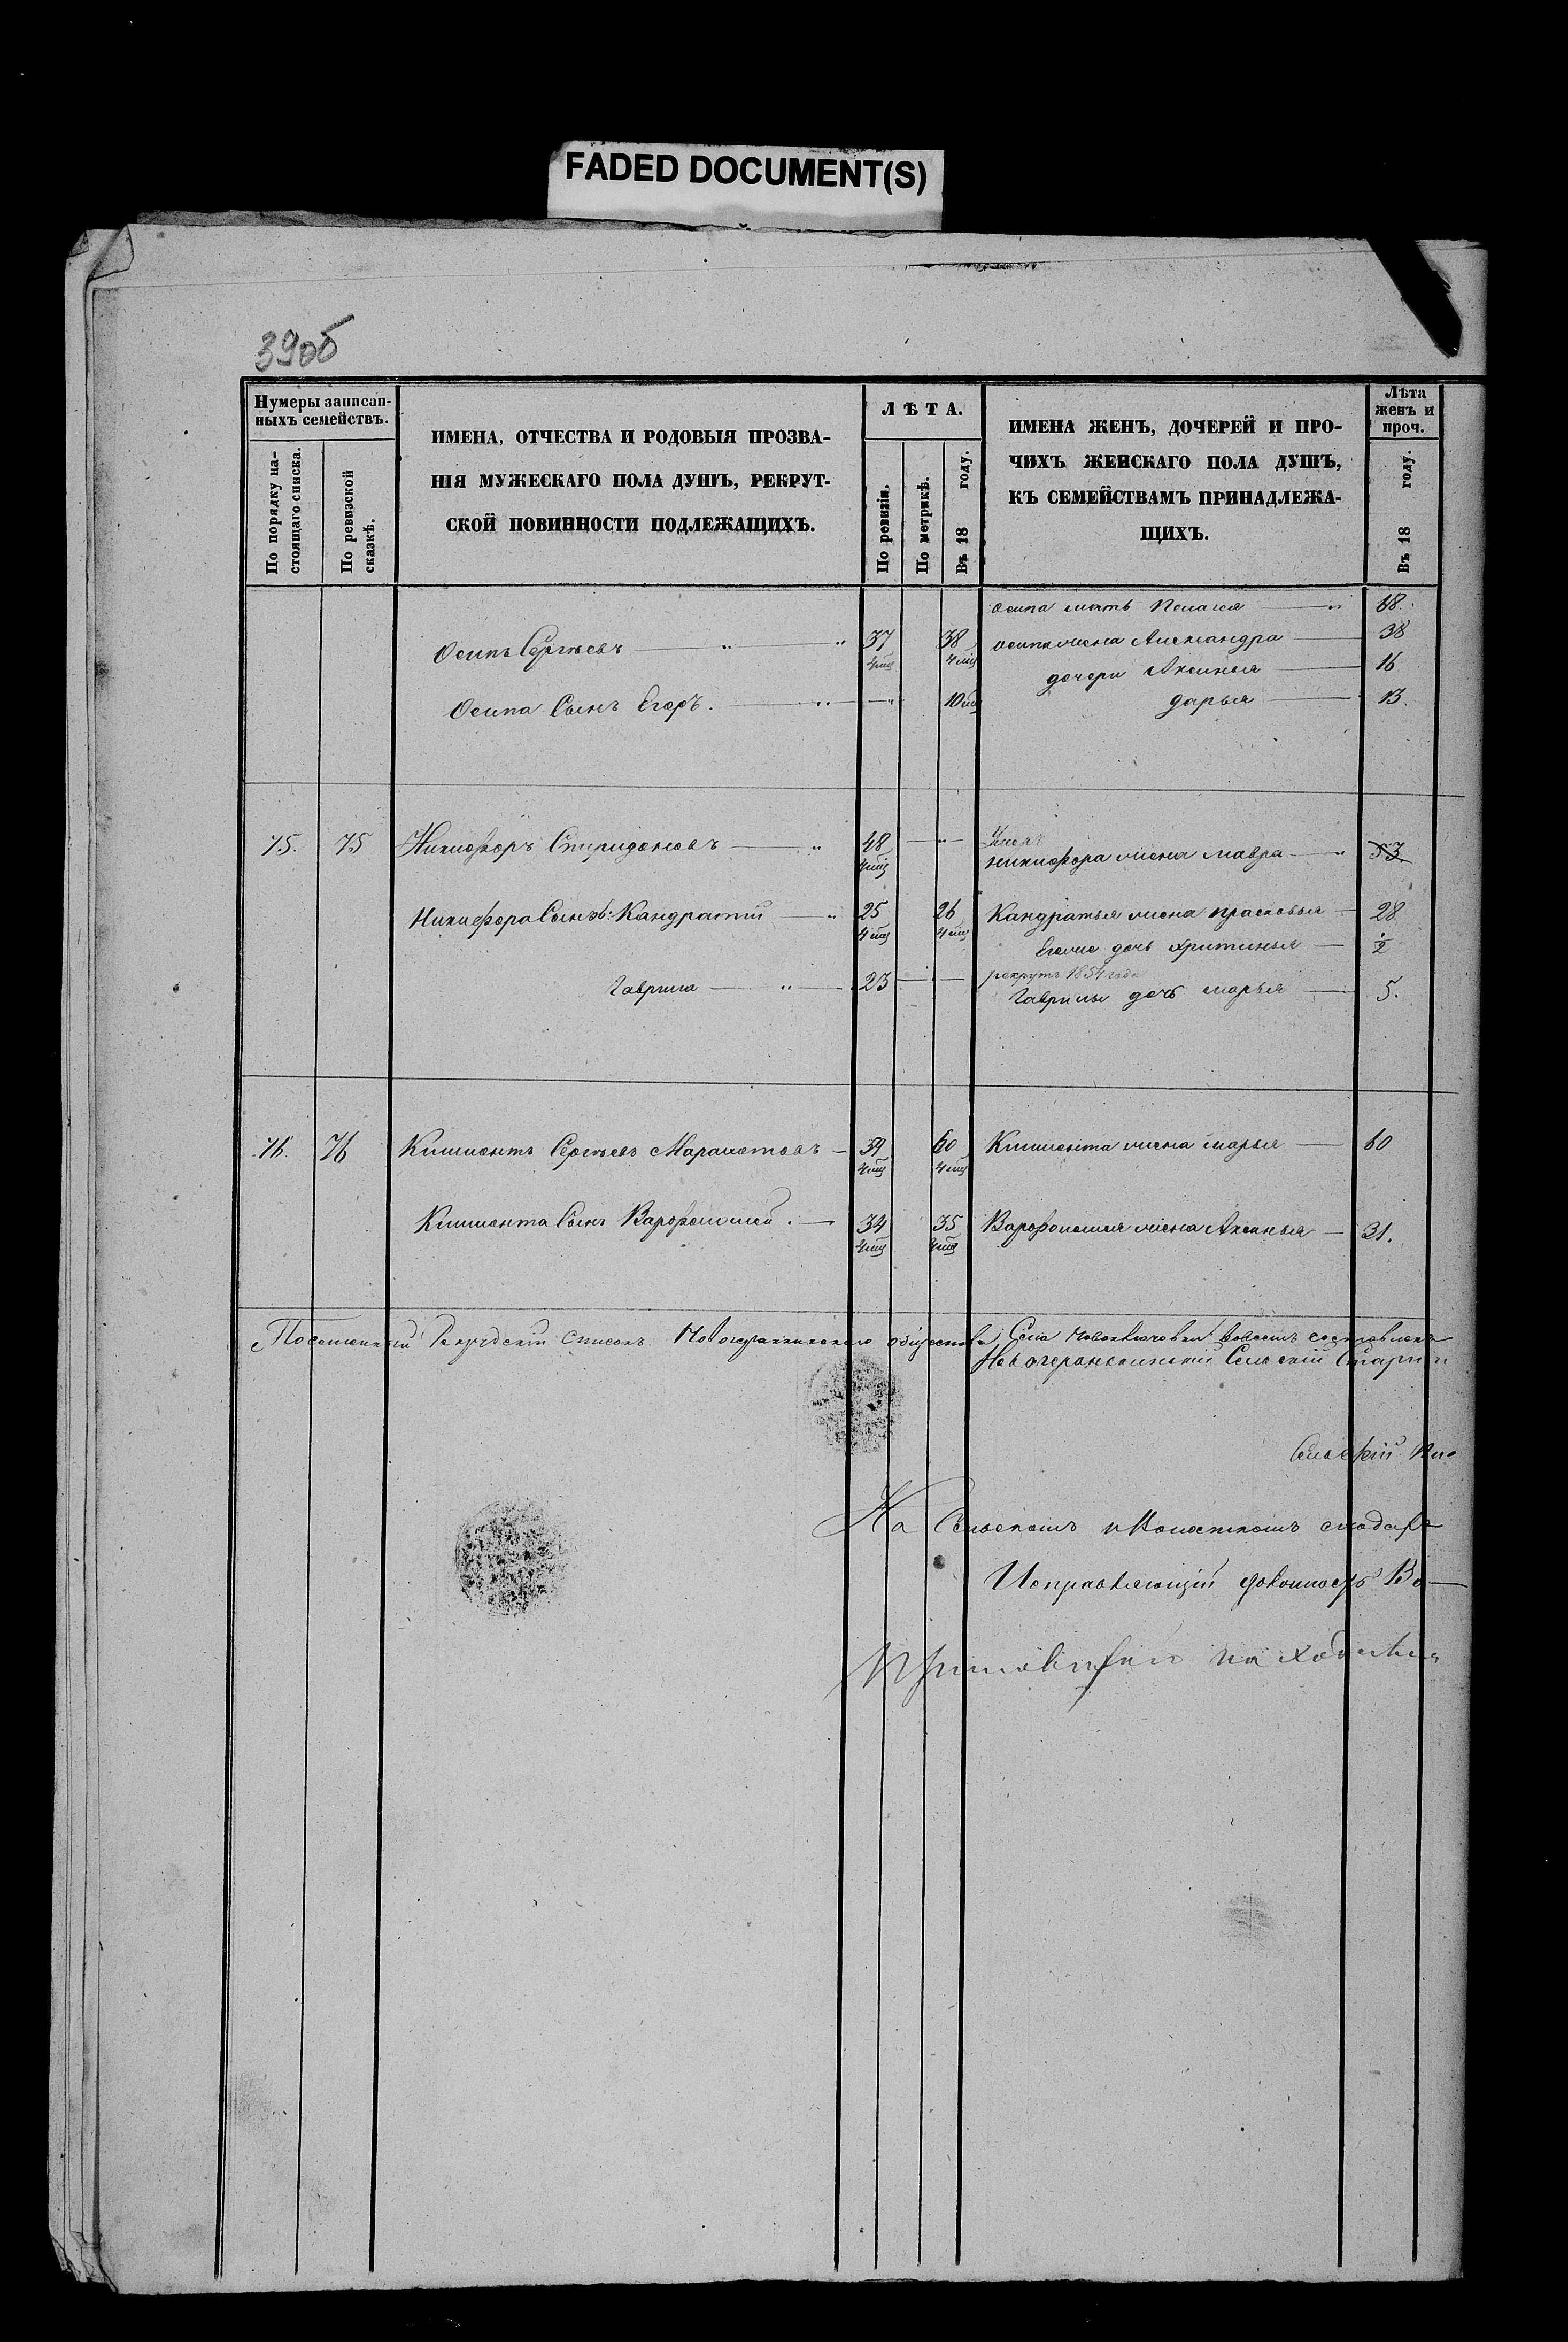 FADED DOCUMENT(S)
39об
Нумеры записан-
ныхъ семействъ.
По порядку на-
стоящаго списка.
По ревизской
сказкѣ.
ИМЕНА, ОТЧЕСТВА И РОДОВЫЯ ПРОЗВА-
НІЯ МУЖЕСКАГО ПОЛА ДУШЪ, РЕКРУТ-
СКОЙ ПОВИННОСТИ ПОДЛЕЖАЩИХЪ.
ЛѢТА.
По ревизіи.
По метрикѣ.
Въ 18 году.
ИМЕНА ЖЕНЪ, ДОЧЕРЕЙ И ПРО-
ЧИХЪ ЖЕНСКАГО ПОЛА ДУШЪ,
КЪ СЕМЕЙСТВАМЪ ПРИНАДЛЕЖА-
ЩИХЪ.
Лѣта
женъ и
проч.
Въ 18 году.
осипа мать Пелагея — 68.
Осипъ Сергѣевъ — 37 38 осипа жена Александра — 38
дочери Аксинья — 16
Осипа Сынъ Егоръ. — 10 дарья — 13.
75. 75 Никифоръ Спиридоновъ — 48 —
никифора жена мавра — 53
Никифора Сынъ: Кандратій — 25 26 Кандратья жена прасковья — 28
Еголие дочь христинья — 1/2
рекрутъ 1854 года
Гаврила — 23 — Гаврилы дочь марья — 5.
76. 76 Климентъ Сергѣевъ — 59 60 Климента жена марья — 60
Климента Сынъ Варфоломей. — 34 35 Варфоломея жена Аксинья — 31.
Посемейный Рекрудскій Списокъ общества Села составленъ
Сельскій Старши
Сельскій Пис
На Сельскомъ и Волостномъ сходахъ
Исправляющій должность Во